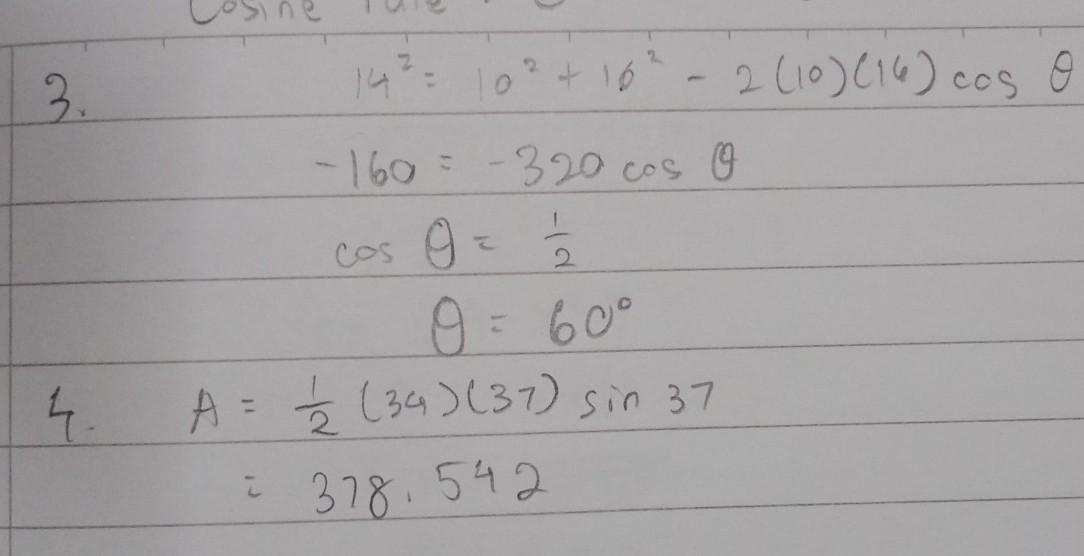 Cosine rule
3. 14² = 10² + 16² - 2(10)(16) cos θ
-160 = -320 cos θ
cos θ = 1/2
θ = 60°
4. A = 1/2 (34)(37) sin 37
= 378.542